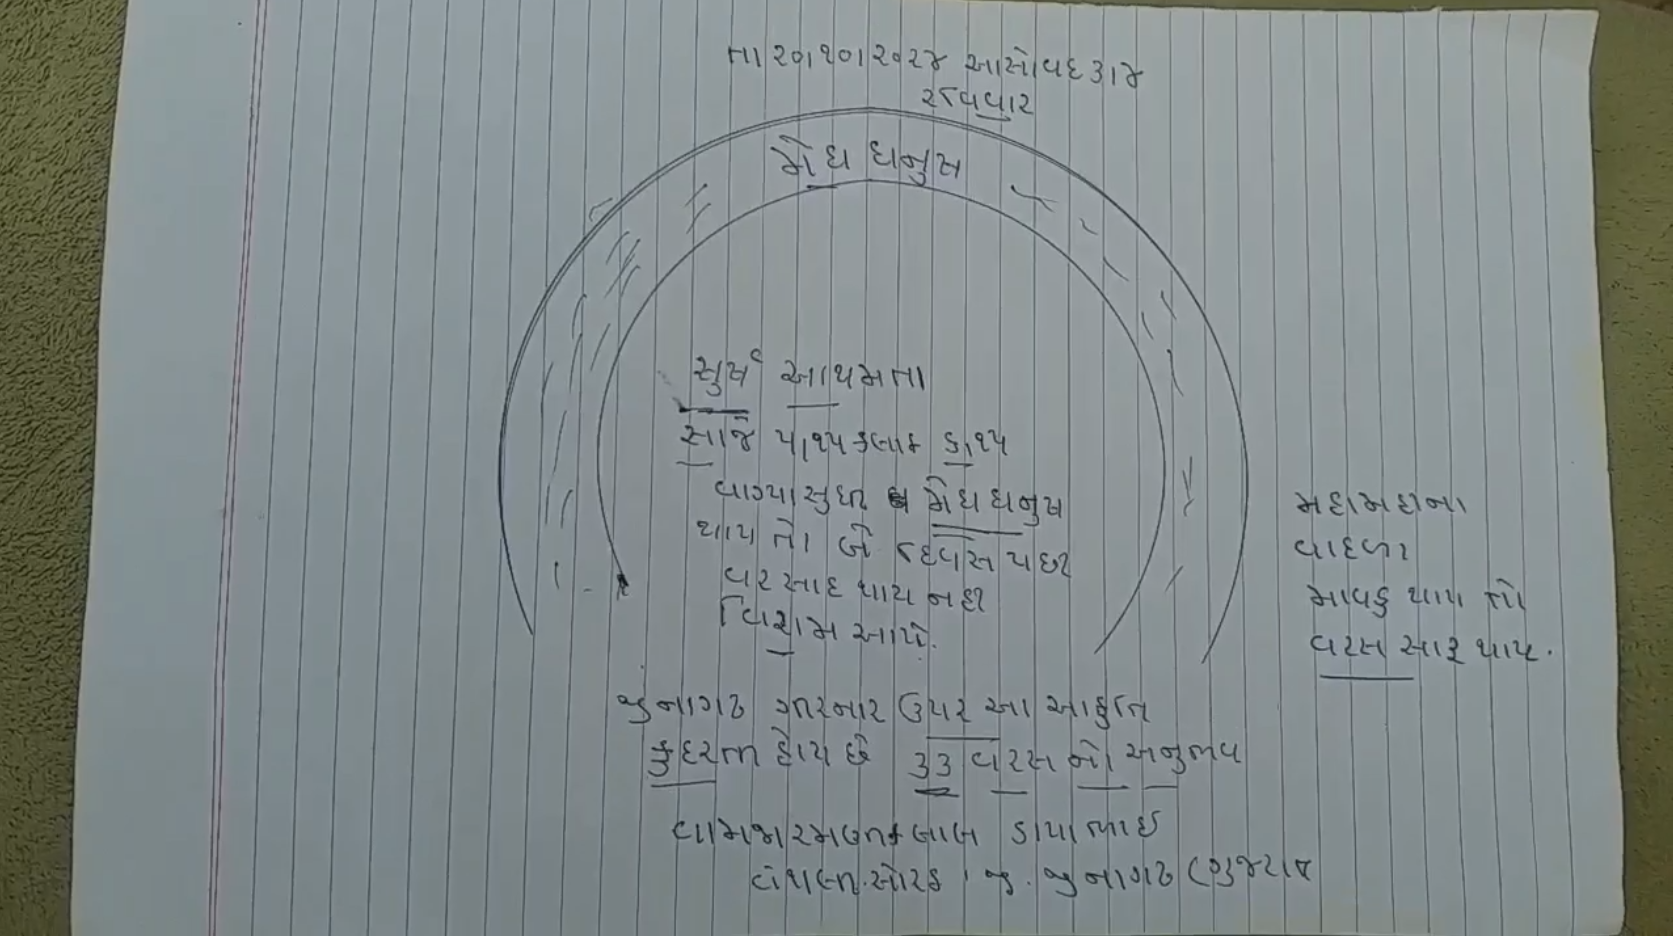 તા ૨૦।૧૦।૨૦૨૪ આસોવદ ૩।૪
રવિવાર
મેઘ ધનુસ
સુર્ય આથમતા
સાંજે ૫।૧૫ કલાક ૬।૧૫
વાગ્યા સુધી મેઘ ધનુષ
થાય તો બે દિવસ પછી
વરસાદ થાય નહી
વિરામ આપે.
મહામહીના
વાદળા
માવઠુ થાય તો
વરસ સારૂ થાય.
જુનાગઢ ગીરનાર ઉપર આ આકૃતિ
કુદરતી હોય છે ૩૩ વરસ નો અનુભવ
રમણીકલાલ ડાયાભાઈ
વંથલી.સોરઠ। જી. જુનાગઢ (ગુજરાત